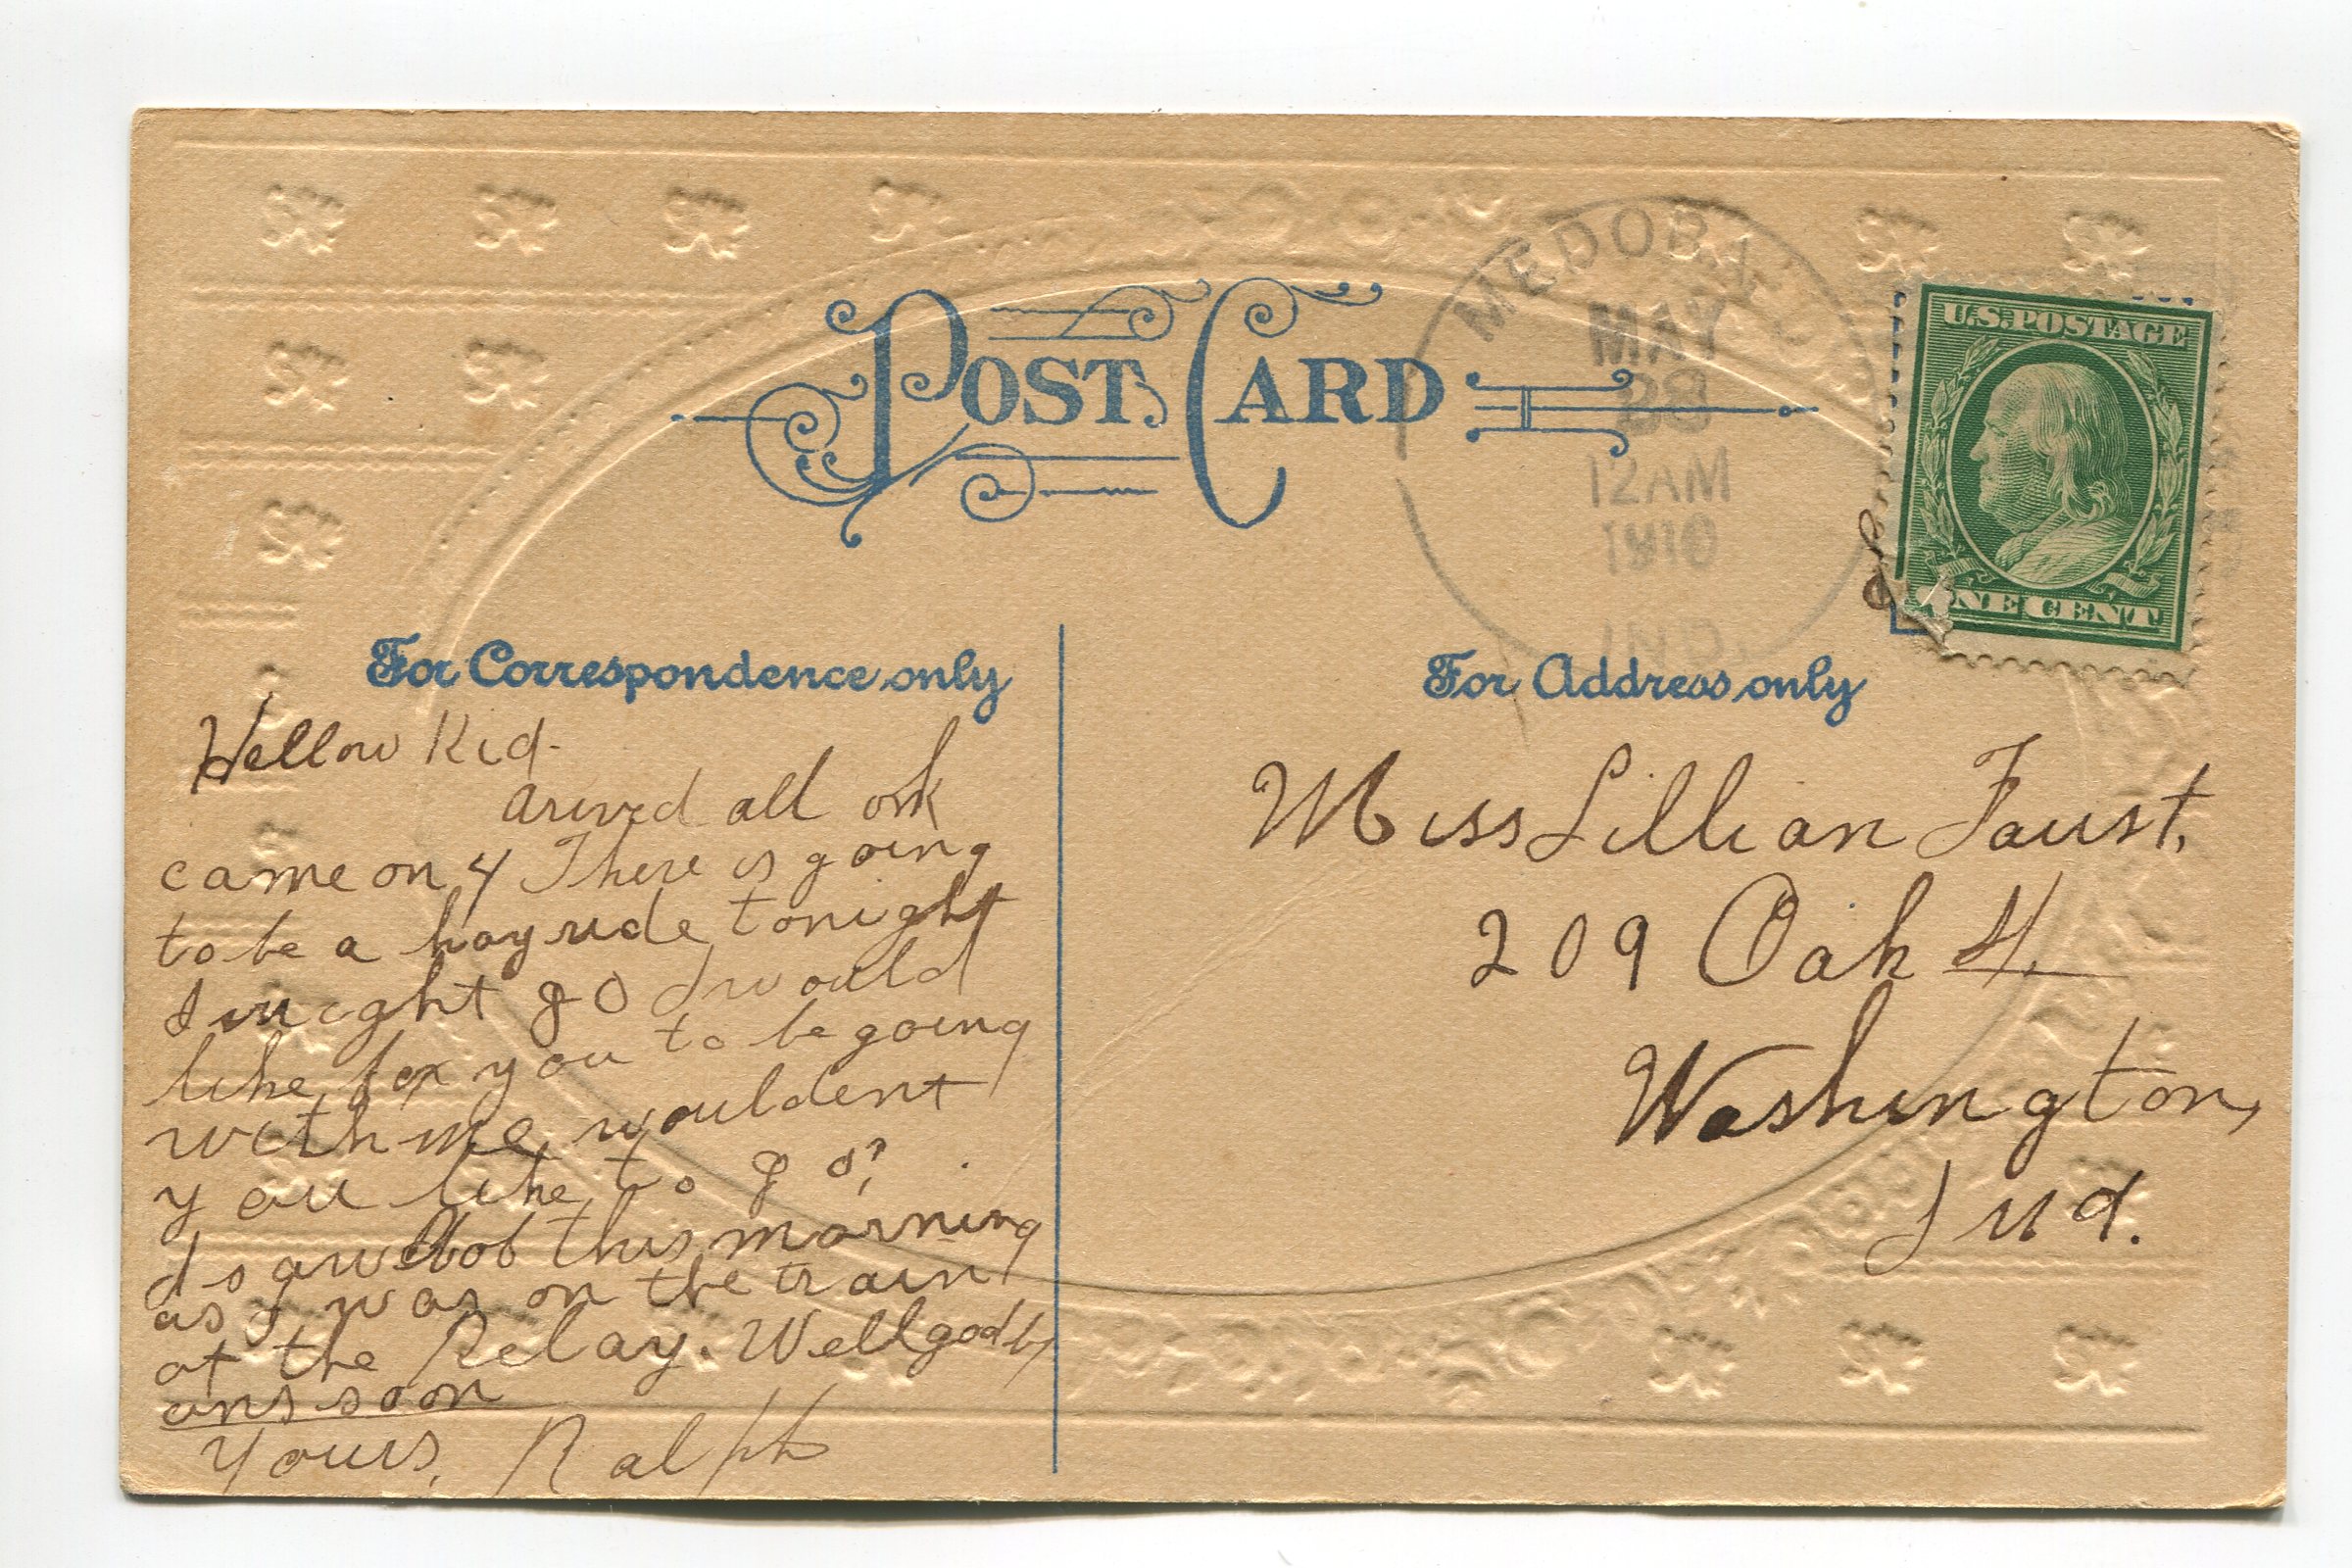 POST CARD
MEDORA
MAY
28
12AM
1910
IND.
U.S. POSTAGE
ONE CENT
For Correspondence only
For Address only
Hellow Kid-
arived all ok
came on 4 There is going
to be a hayride tonight
I might go I would
like for you to be going
with me wouldent
you like to go?
I saw Bob this morning
as I was on the train
at the Relay. Well goodby
ans soon
Yours, Ralph
Miss Lillian Faust,
209 Oak St.
Washington,
Ind.